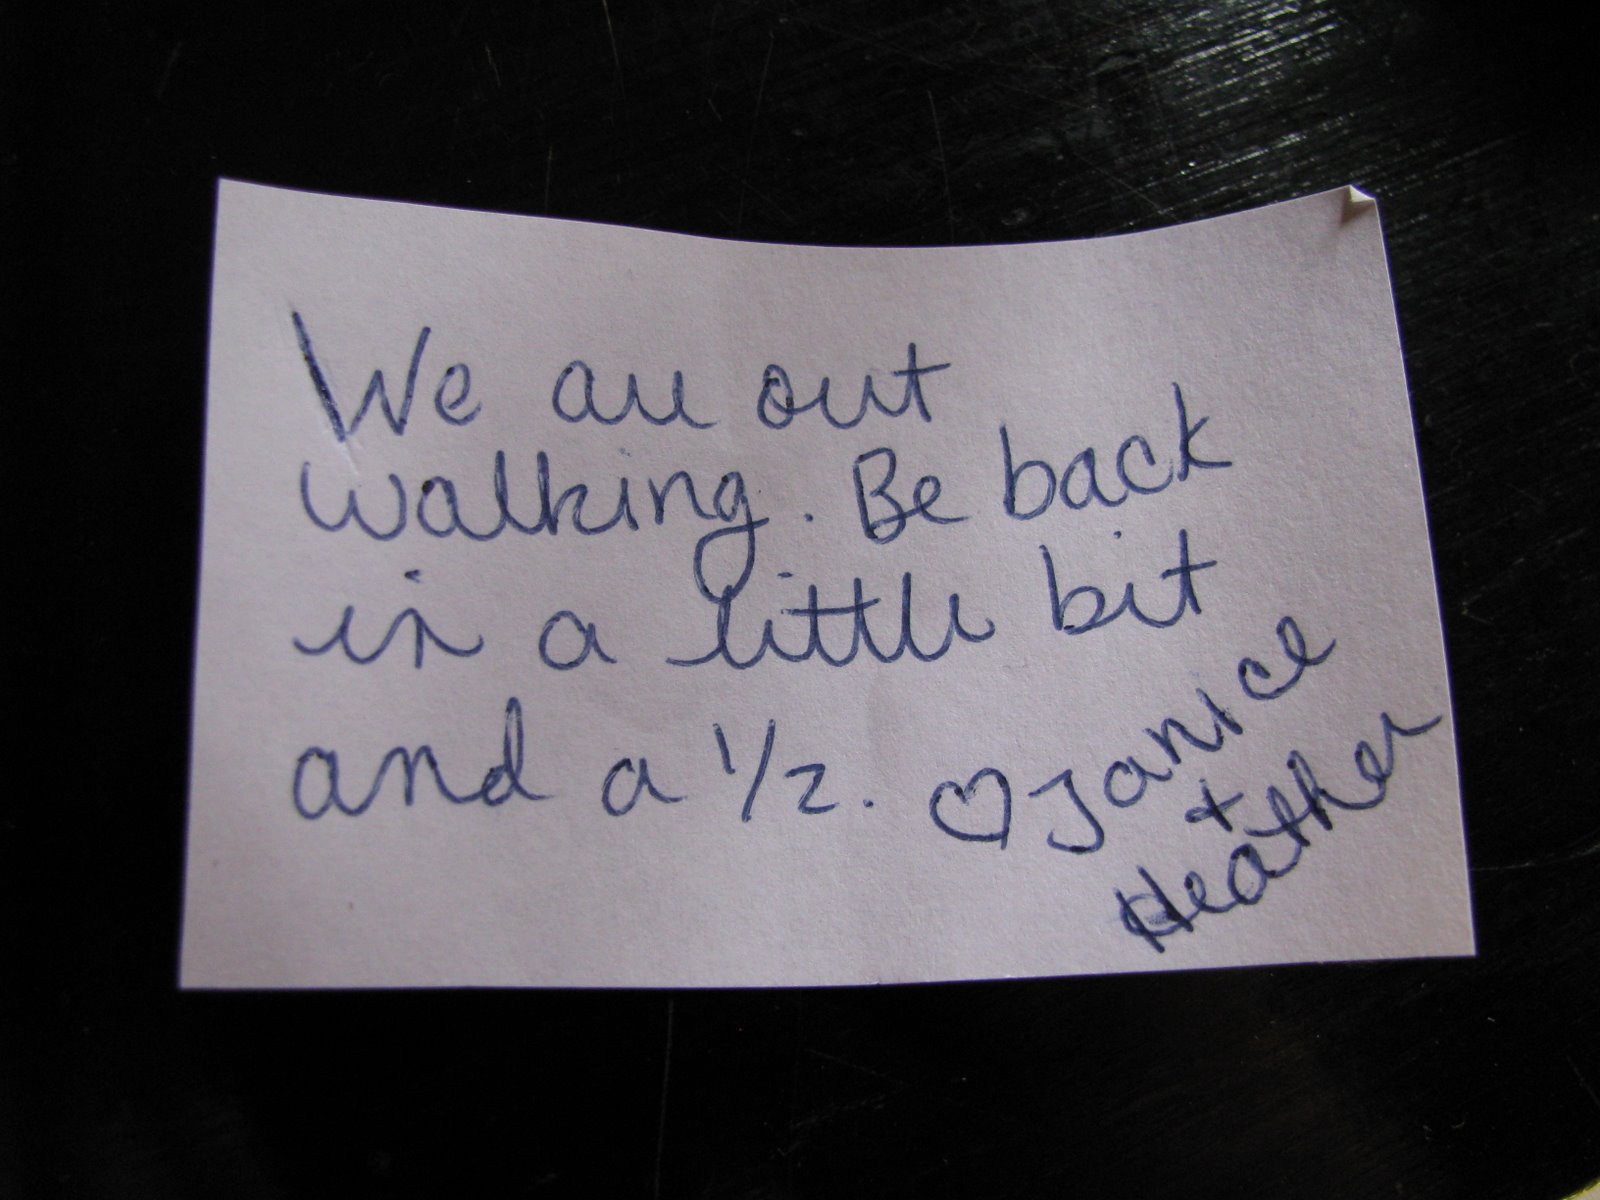 We are out
walking. Be back
in a little bit
and a 1/2. ♡ Janice
+
Heather